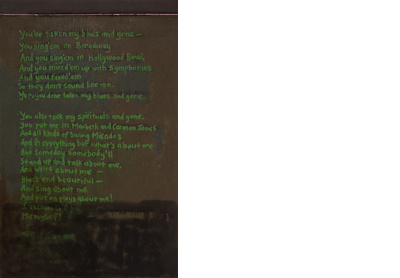 You've taken my blues and gone —
You sing 'em on Broadway
And you sing 'em in Hollywood Bowl,
And you mixed 'em up with symphonies
And you fixed 'em
So they don't sound like me.
Yep, you done taken my blues and gone.
You also took my spirituals and gone.
You put me in Macbeth and Carmen Jones
And all kinds of Swing Mikados
And in everything but what's about me
But someday somebody'll
Stand up and talk about me,
And write about me —
Black and beautiful —
And sing about me,
And put on plays about me!
I reckon
Me myself!